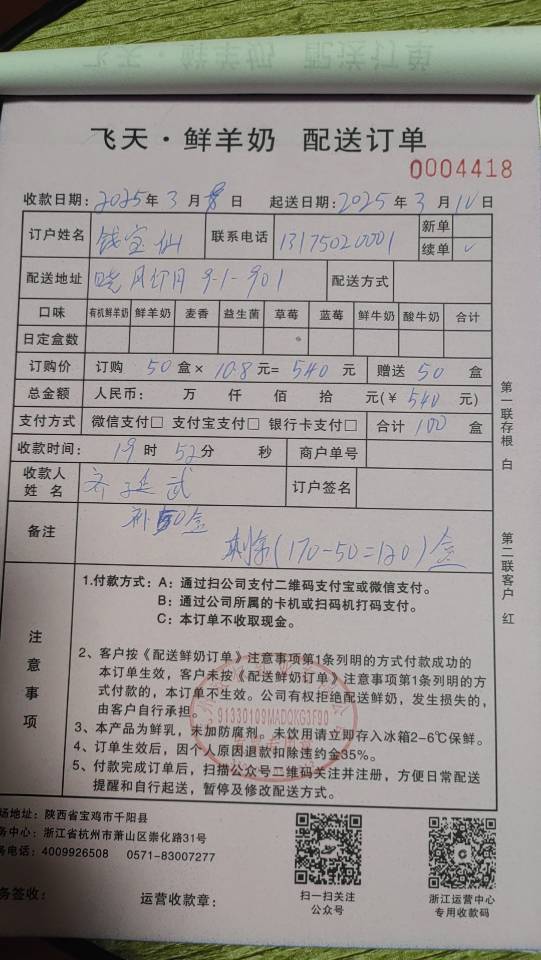 飞天·鲜羊奶 配送订单
0004418
收款日期：2025年3月8日 起送日期：2025年3月10日
订户姓名 钱宝仙 联系电话 13175020001 新单
续单 ✓
配送地址 晓风印月 9-1-901 配送方式
口味 有机鲜羊奶 鲜羊奶 麦香 益生菌 草莓 蓝莓 鲜牛奶 酸牛奶 合计
日定盒数
订购价 订购 50 盒× 10.8 元= 540 元 赠送 50 盒
总金额 人民币： 万 仟 佰 拾 元(￥ 540 元)
支付方式 微信支付□ 支付宝支付□ 银行卡支付□ 合计 100 盒
收款时间： 19 时 52 分 秒 商户单号
收款人姓名 武 订户签名
备注 补50盒
剩余(170-50=120)盒
第一联存根 白
第二联客户 红
注意事项
1.付款方式：A：通过扫公司支付二维码支付宝或微信支付。
B：通过公司所属的卡机或扫码机打码支付。
C：本订单不收取现金。
2、客户按《配送鲜奶订单》注意事项第1条列明的方式付款成功的
本订单生效，客户未按《配送鲜奶订单》注意事项第1条列明的方
式付款的，本订单不生效。公司有权拒绝配送鲜奶，发生损失的，
由客户自行承担。
91330109MADQKG3F90
3、本产品为鲜乳，未加防腐剂。未饮用请立即存入冰箱2-6℃保鲜。
4、订单生效后，因个人原因退款扣除违约金35%。
5、付款完成订单后，扫描公众号二维码关注并注册，方便日常配送
提醒和自行起送，暂停及修改配送方式。
场地址：陕西省宝鸡市千阳县
务中心：浙江省杭州市萧山区崇化路31号
务电话：4009926508 0571-83007277
务签收： 运营收款章：
扫一扫关注
公众号
浙江运营中心
专用收款码